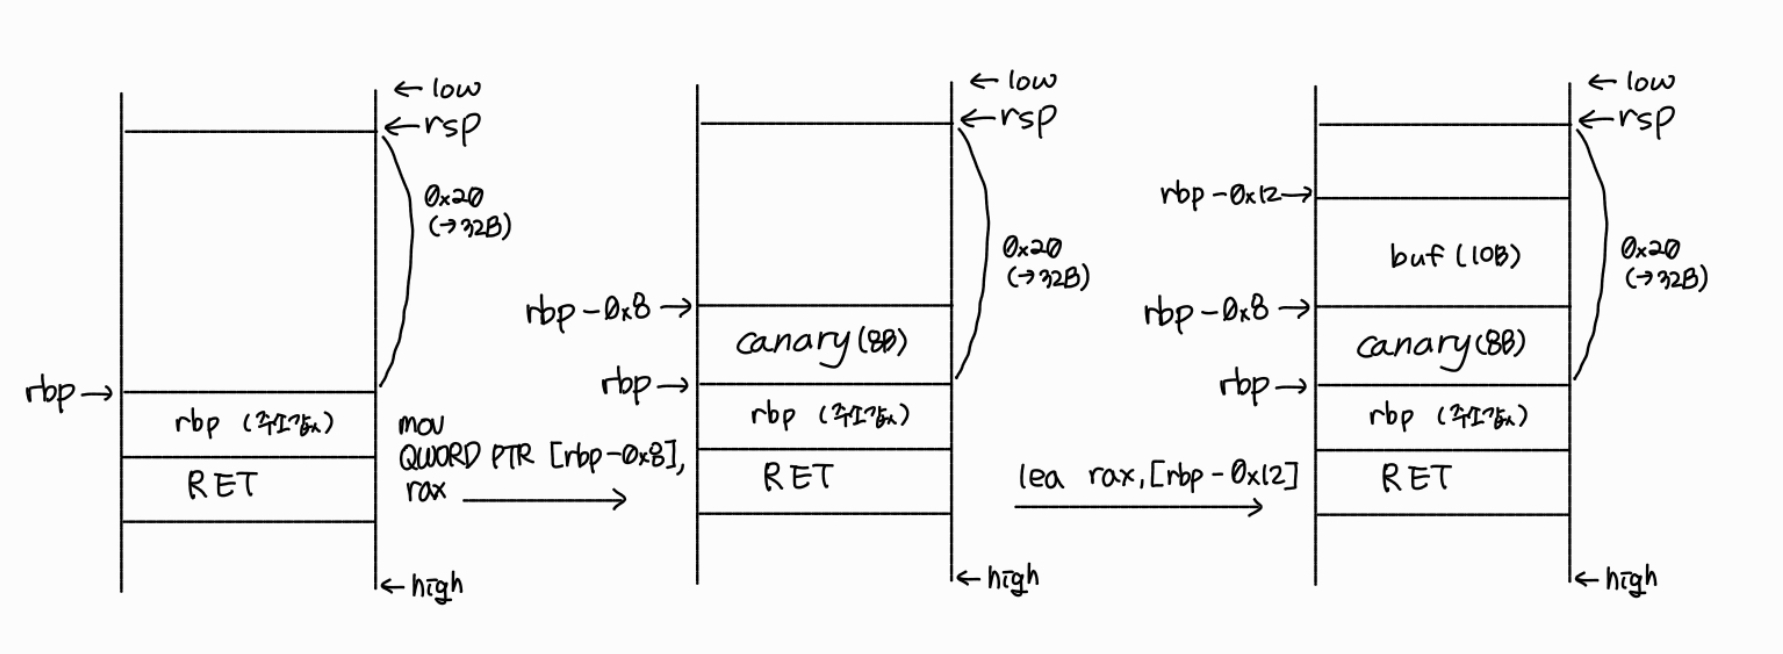 ← low
← rsp
0x20
(→32B)
rbp →
rbp (주소값)
RET
← high
mov
QWORD PTR [rbp-0x8],
rax
← low
← rsp
0x20
(→32B)
rbp-0x8 →
canary(8B)
rbp →
rbp (주소값)
RET
← high
lea rax,[rbp-0x12]
← low
← rsp
rbp-0x12→
buf(10B)
0x20
(→32B)
rbp-0x8 →
canary(8B)
rbp →
rbp (주소값)
RET
← high